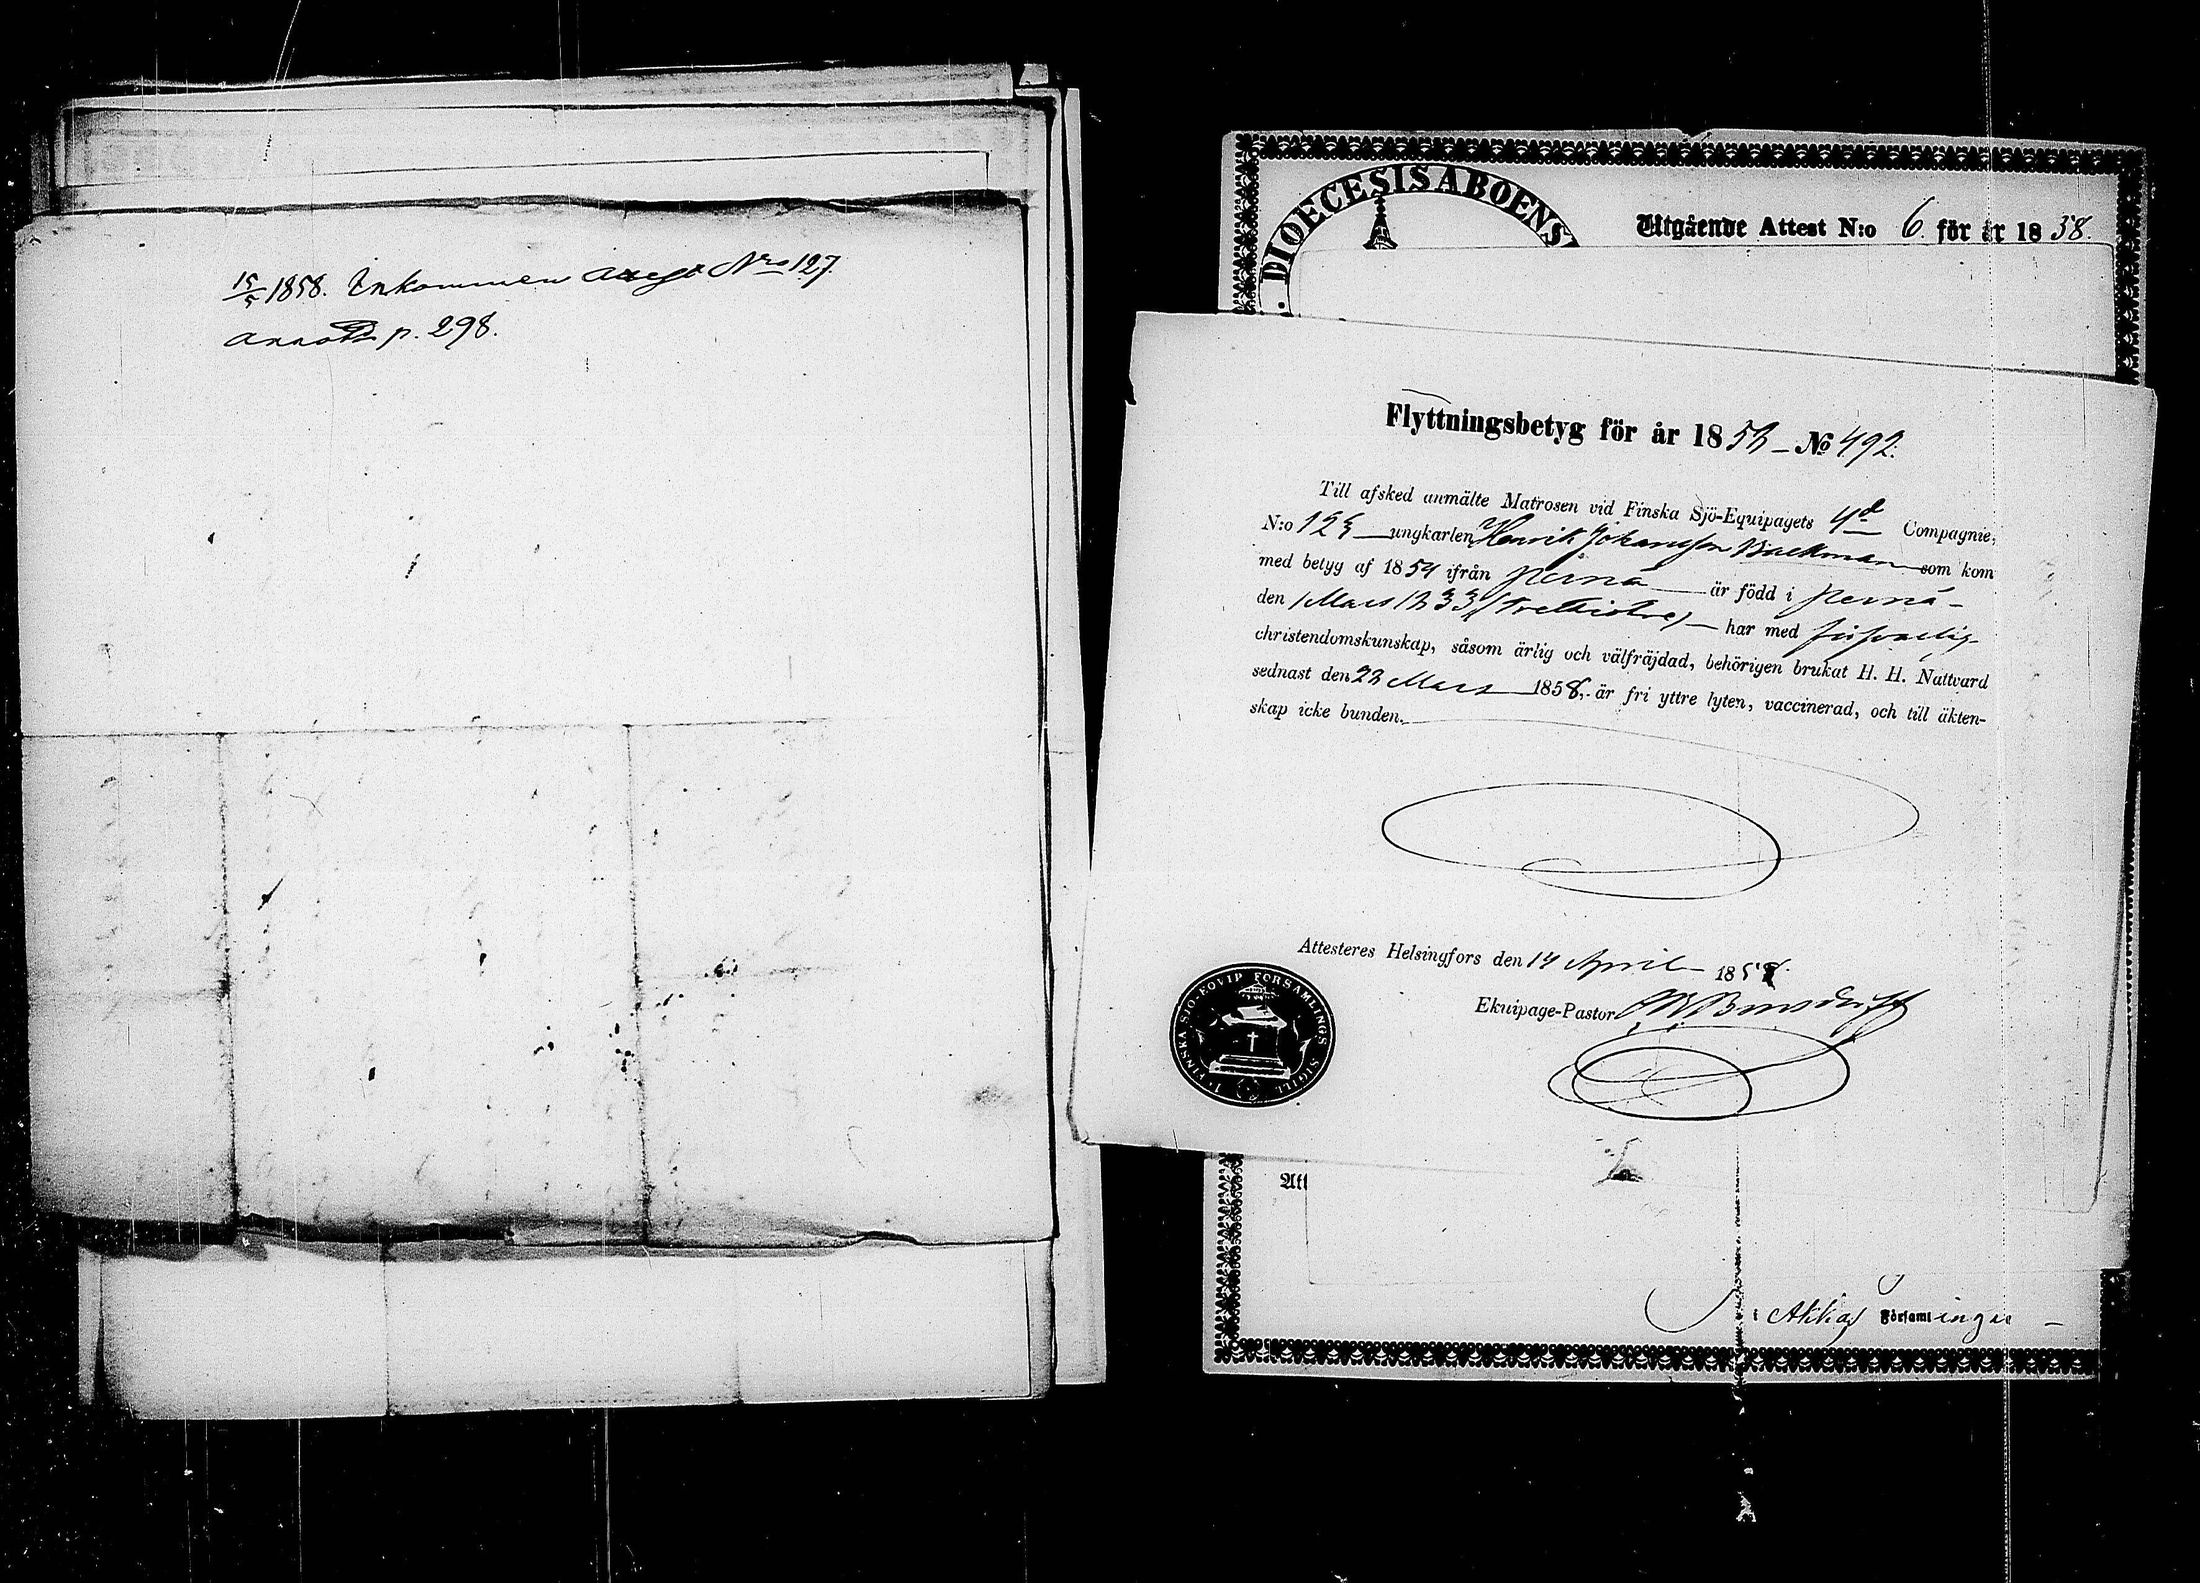 15/5 1858. Inkommen attest Nro 127.
Annot. p. 298.
DIOECESIS ABOENS
Utgående Attest N:o 6 för år 1858.
Flyttningsbetyg för år 1858 – No 492.
Till afsked anmälte Matrosen vid Finska Sjö-Equipagets 4de Compagnie,
N:o 123 ungkarlen Henrik Johansson Backman som kom
med betyg af 1854 ifrån Perna är född i Perna –
den 1 Mars 1833 – har med försvarlig
christendomskunskap, såsom ärlig och välfräjdad, behörigen brukat H. H. Nattvard
sednast den 22 Mars 1858, är fri yttre lyten, vaccinerad, och till äkten-
skap icke bunden.
Attesteres Helsingfors den 14 April 1858.
Ekuipage-Pastor
FINSKA SJÖ-EQVIP FÖRSAMLINGS SIGILL
Att
i Akkas Församlingar –